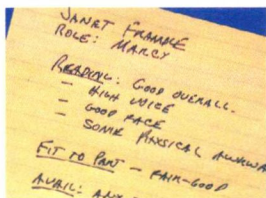 JANET FRAMPLE
ROLE: MARCY
READING: GOOD OVERALL.
- HIGH VOICE
- GOOD FACE
- SOME PHYSICAL AWKWA
FIT TO PART - FAIR-GOOD
AVAIL: ANY